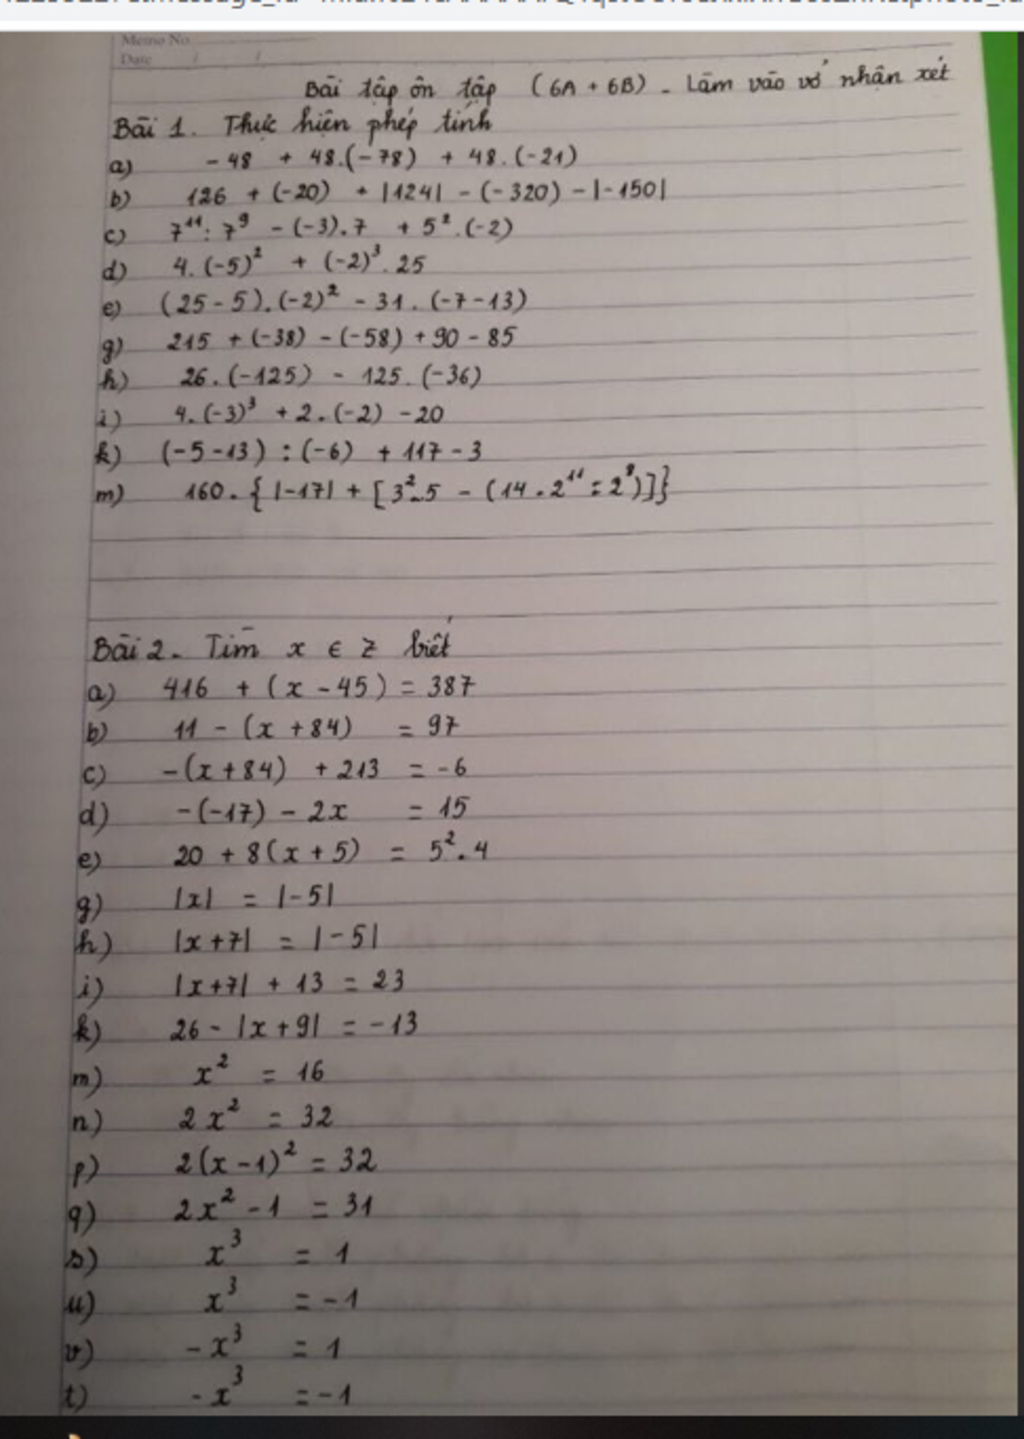 Memo No.
Date / /
Bài tập ôn tập (6A + 6B) - Làm vào vở nhận xét
Bài 1. Thực hiện phép tính
a) - 48 + 48.(-78) + 48.(-21)
b) 126 + (-20) + |124| - (-320) - |-150|
c) 7¹¹ : 7⁹ - (-3).7 + 5².(-2)
d) 4.(-5)² + (-2)³.25
e) (25 - 5).(-2)² - 31.(-7-13)
g) 215 + (-38) - (-58) + 90 - 85
h) 26.(-125) - 125.(-36)
i) 4.(-3)³ + 2.(-2) - 20
k) (-5-13) : (-6) + 117 - 3
m) 160 - { |-17| + [3².5 - (14 . 2¹¹ : 2⁸)]}
Bài 2. Tìm x ∈ Z biết
a) 416 + (x - 45) = 387
b) 11 - (x + 84) = 97
c) -(x + 84) + 213 = -6
d) -(-17) - 2x = 15
e) 20 + 8(x + 5) = 5².4
g) |x| = |-5|
h) |x + 7| = |-5|
i) |x+7| + 13 = 23
k) 26 - |x + 9| = -13
m) x² = 16
n) 2x² = 32
p) 2(x - 1)² = 32
q) 2x² - 1 = 31
s) x³ = 1
u) x³ = -1
v) -x³ = 1
t) -x³ = -1